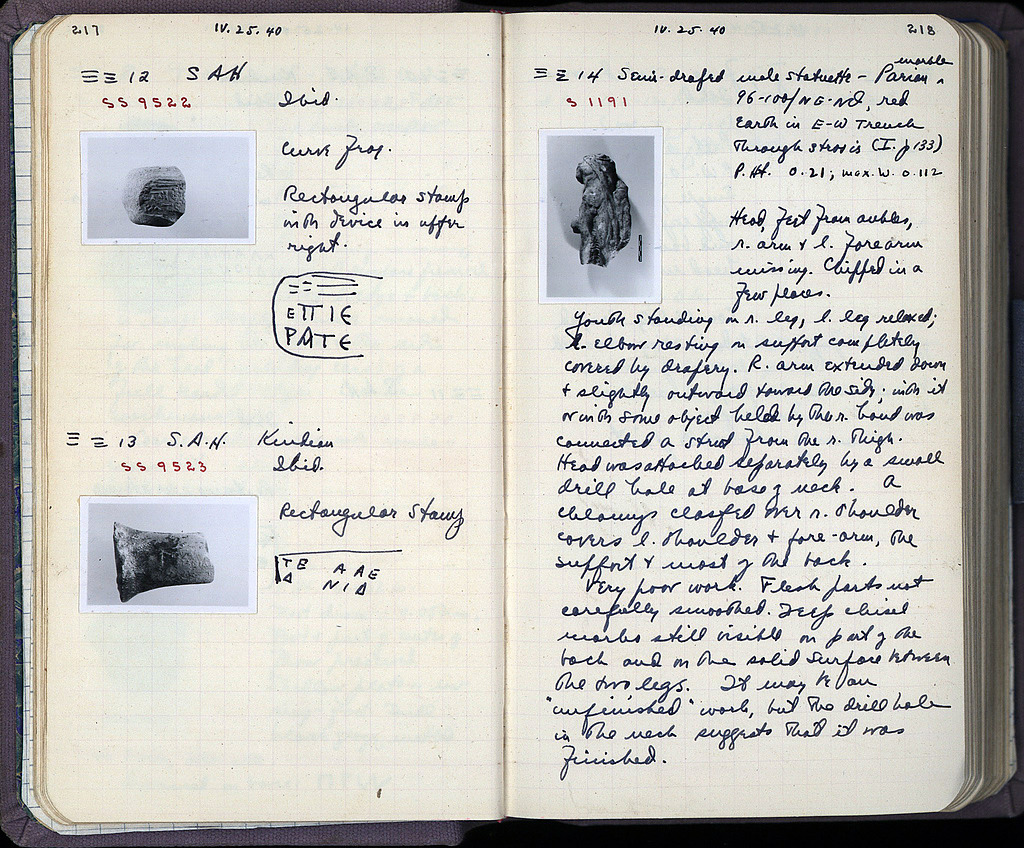 217
IV. 25. 40
ΞΞ 12 SAH
SS 9522
Ibid.
Curve frag.
Rectangular stamp
with device in upper
right.
ΕΠΙΕ
ΡΑΤΕ
ΞΞ 13 S.A.H. Knidian
SS 9523
Ibid.
Rectangular Stamp
ΤΕ ΑΛΕ
Δ ΝΙΔ
IV. 25. 40
218
ΞΞ 14 Semi-draped male statuette – Parian marble
S 1191
96-100/ΝΕ-ΝΘ, red
Earth in E-W Trench
Through strosis (I. p 133)
P. Ht. 0.21; max. W. 0.112
Head, feet from ankles,
r. arm + l. forearm
missing. Chipped in a
few places.
Youth standing on r. leg, l. leg relaxed;
l. elbow resting on support completely
covered by drapery. R. arm extended down
+ slightly outward toward the side; with it
or with some object held by the r. hand was
connected a strut from the r. thigh.
Head was attached separately by a small
drill hole at base of neck. A
chlamys clasped over r. shoulder
covers l. shoulder + fore-arm, the
support + most of the back.
Very poor work. Flesh parts not
carefully smoothed. Deep chisel
marks still visible on part of the
back and on the solid surface between
the two legs. It may be an
"unfinished" work, but the drill hole
in the neck suggests that it was
finished.